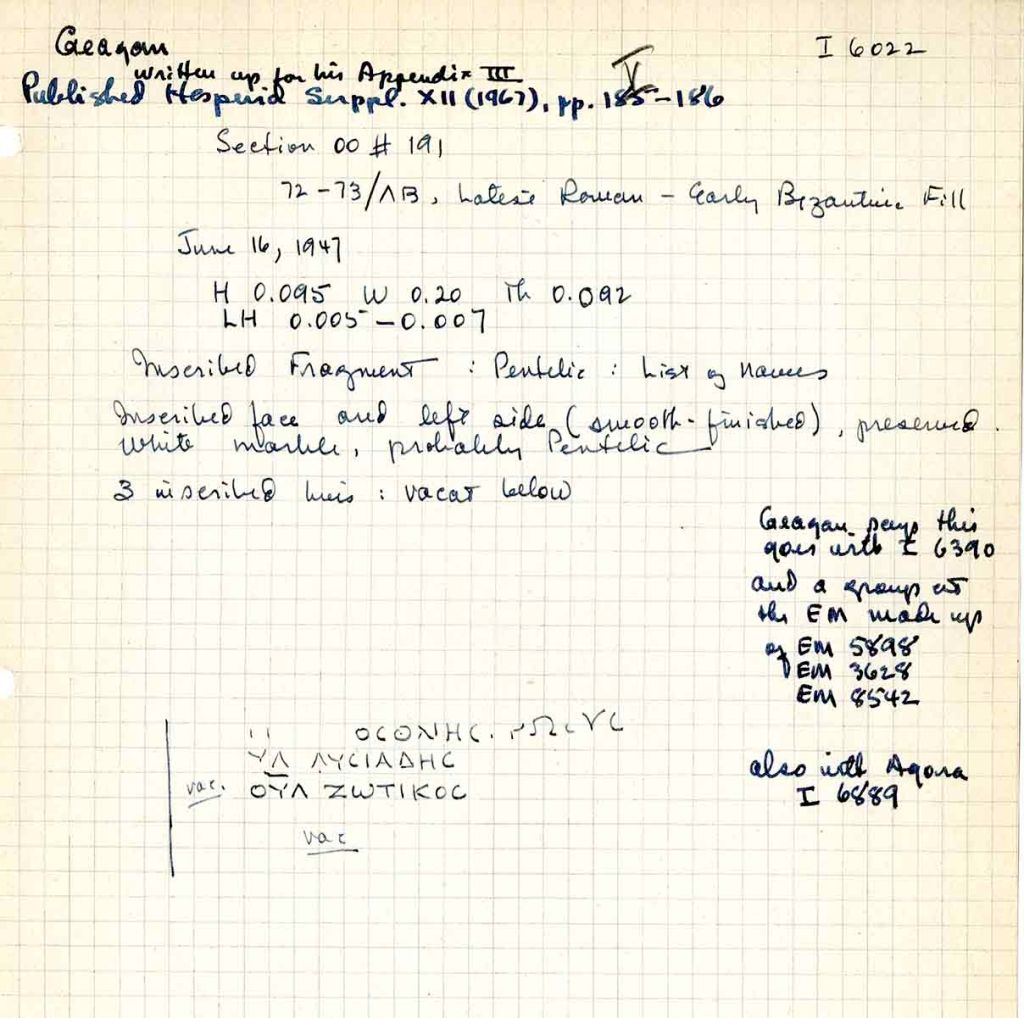 Geagan
I 6022
written up for his Appendix III
V
Published Hesperia Suppl. XII (1967), pp. 185-186
Section OO # 191
72-73/ΛB, Latest Roman - Early Byzantine Fill
June 16, 1947
H 0.095 W 0.20 Th 0.092
LH 0.005-0.007
Inscribed Fragment : Pentelic : List of names
Inscribed face and left side (smooth-finished), preserved.
White marble, probably Pentelic
3 inscribed lines : vacat below
Geagan says this
goes with I 6390
and a group at
the EM made up
of EM 5898
EM 3628
EM 8542
also with Agora
I 6889
ΟCΟΝΗC
ΥΛ ΛΥCΙΑΔΗC
vac. ΟΥΛ ΖΩΤΙΚΟC
vac